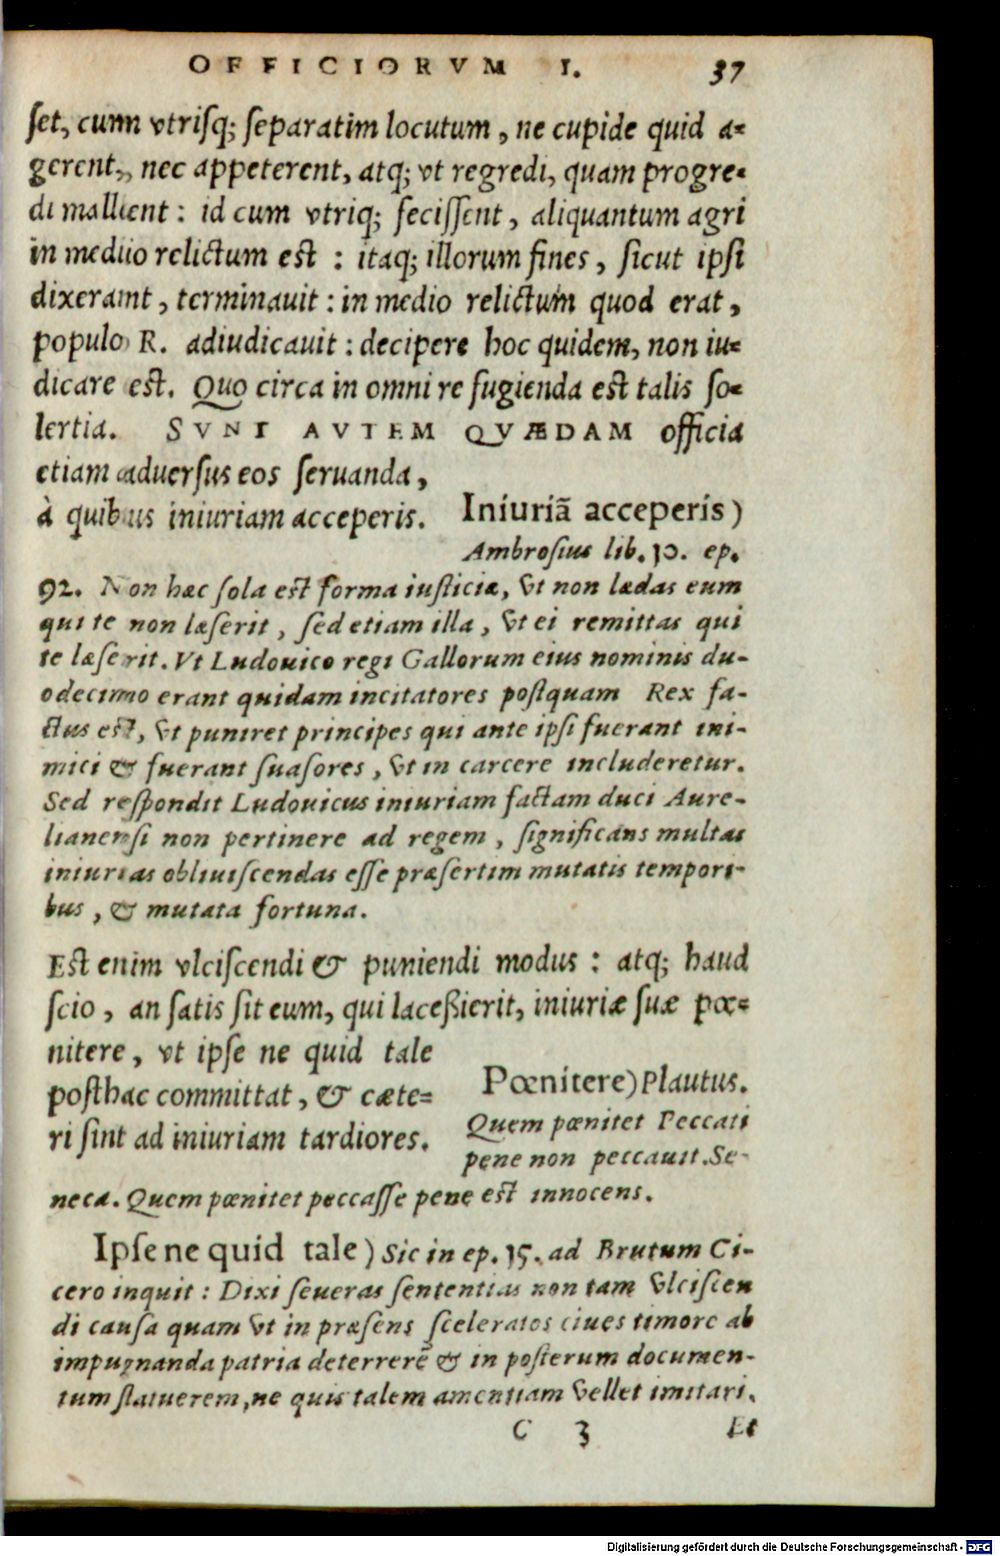 OFFICIORVM I. 37
set, cum vtrisq; separatim locutum, ne cupide quid a=
gerent, nec appeterent, atq; vt regredi, quam progre=
di mallent: id cum vtriq; fecissent, aliquantum agri
in medio relictum est: itaq; illorum fines, sicut ipsi
dixerant, terminauit: in medio relictum quod erat,
populo R. adiudicauit: decipere hoc quidem, non iu=
dicare est. Quo circa in omni re fugienda est talis so=
lertia. SVNT AVTEM QVÆDAM officia
etiam aduersus eos seruanda,
à quibus iniuriam acceperis.
Iniuriā acceperis)
Ambrosius lib. 10. ep.
92. Non hæc sola est forma iusticiæ, vt non lædas eum
qui te non læserit, sed etiam illa, vt ei remittas qui
te læserit. Vt Ludouico regi Gallorum eius nominis du-
odecimo erant quidam incitatores postquam Rex fa-
ctus est, vt puniret principes qui ante ipsi fuerant ini-
mici & fuerant suasores, vt in carcere includeretur.
Sed respondit Ludouicus iniuriam factam duci Aure-
lianensi non pertinere ad regem, significans multas
iniurias obliuiscendas esse præsertim mutatis tempori-
bus, & mutata fortuna.
Est enim vlciscendi & puniendi modus: atq; haud
scio, an satis sit eum, qui laceßierit, iniuriæ suæ pœ=
nitere, vt ipse ne quid tale
posthac committat, & cæte=
ri sint ad iniuriam tardiores.
Pœnitere) Plautus.
Quem pœnitet Peccati
pene non peccauit. Se-
neca. Quem pœnitet peccasse pene est innocens.
Ipse ne quid tale) Sic in ep. 15. ad Brutum Ci-
cero inquit: Dixi seueras sententias non tam vlciscen
di causa quam vt in præsens sceleratos ciues timore ab
impugnanda patria deterrerē & in posterum documen-
tum statuerem, ne quis talem amentiam vellet imitari.
C 3 Et
Digitalisierung gefördert durch die Deutsche Forschungsgemeinschaft - DFG